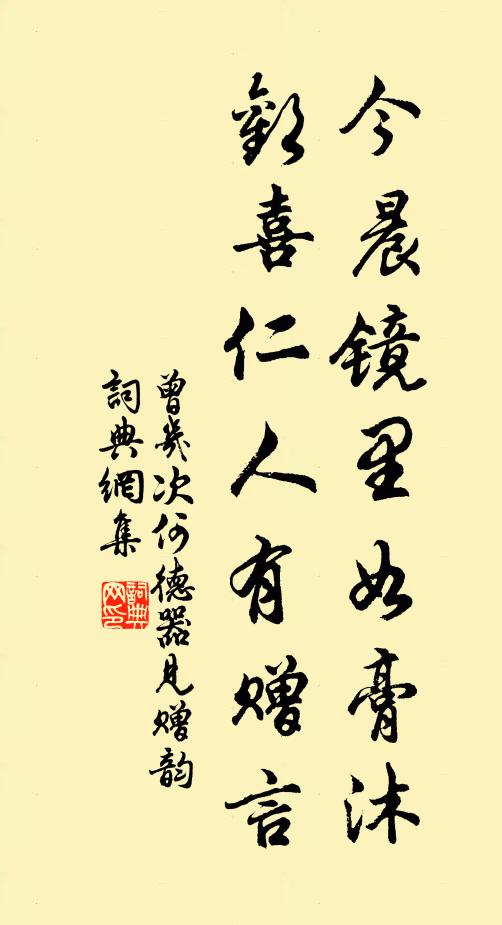 今晨镜里如膏沐
歡喜仁人有赠言
曾幾次何德器見赠韵
詞典網集
詞典网印